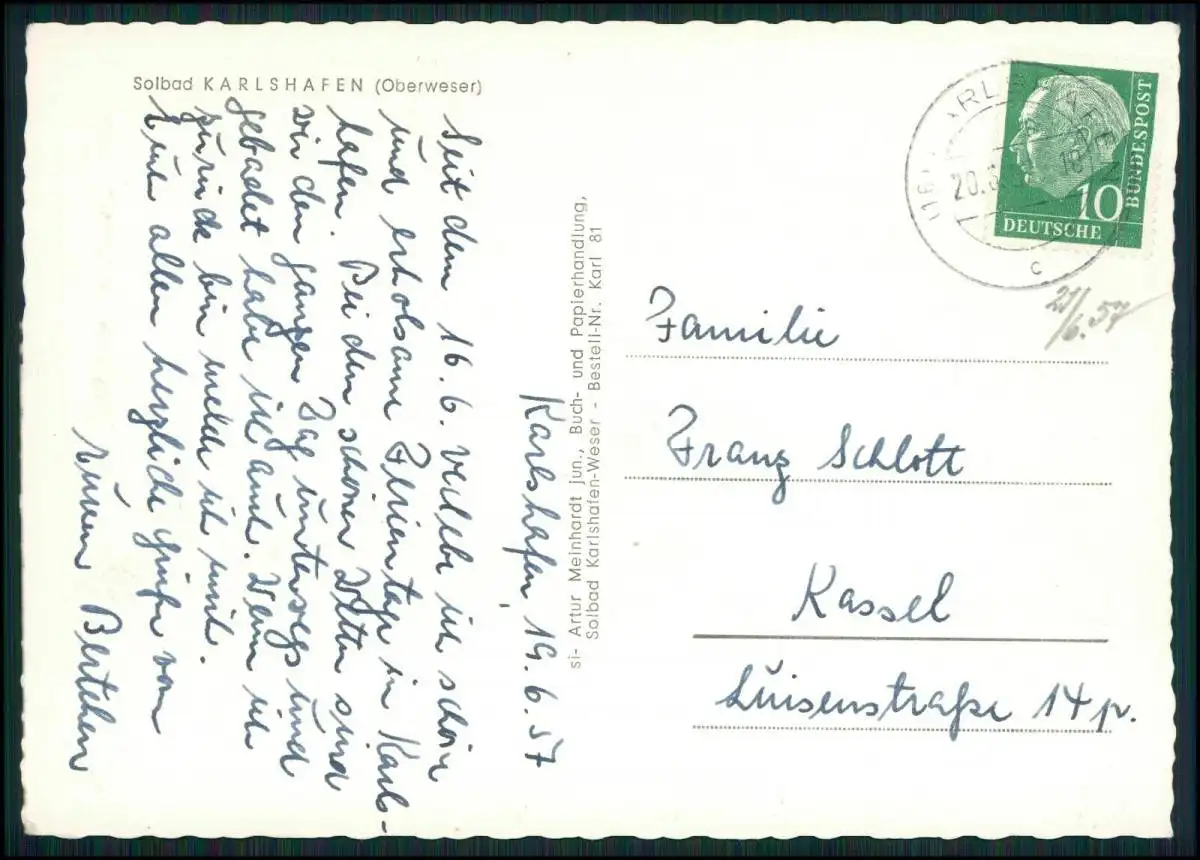 Solbad KARLSHAFEN (Oberweser)
Karlshafen, 19.6.57
Seit dem 16.6. verlebe ich schöne
und erholsame Ferientage in Karls-
hafen. Bei dem schönen Wetter sind
wir den ganzen Tag unterwegs und
gebadet habe ich auch. Wenn ich
zurück bin melde ich mich.
Euch allen herzliche Grüße von
Eurem Bertchen
si- Artur Meinhardt jun., Buch- und Papierhandlung,
Solbad Karlshafen-Weser - Bestell-Nr. Karl 81
DEUTSCHE
BUNDESPOST
10
20.6.
c
21/6.57
Familie
Franz Schlott
Kassel
Luisenstraße 14 p.